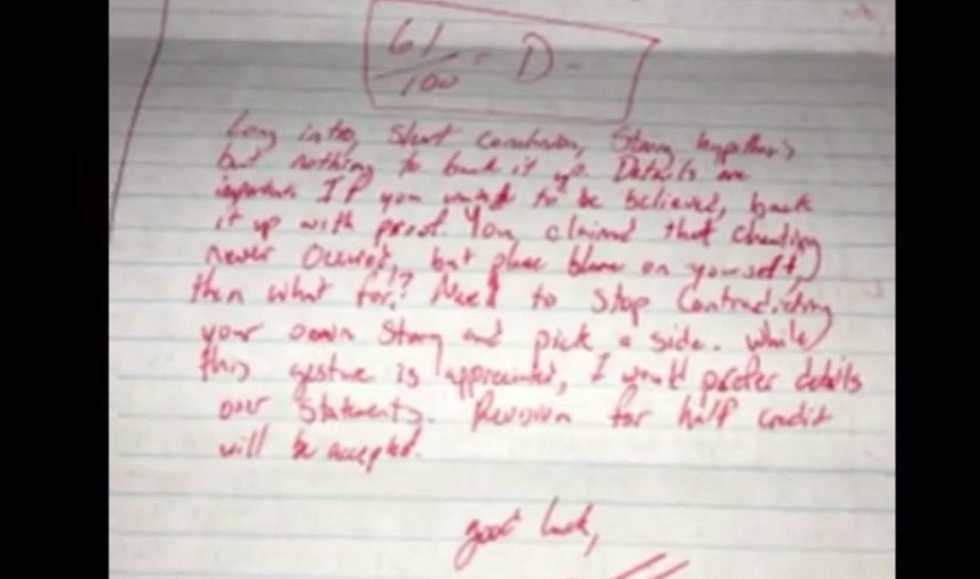 61
100 - D-
Long intro, short conclusion, Strong hypothesis
but nothing to back it up. Details are
important. If you want to be believed, back
it up with proof. You claimed that cheating
never occured, but place blame on yourself,
then what for? Need to stop contradicting
your own story and pick a side. While
this gesture is appreciated, I would prefer details
over statements. Revision for half credit
will be accepted.
good luck,